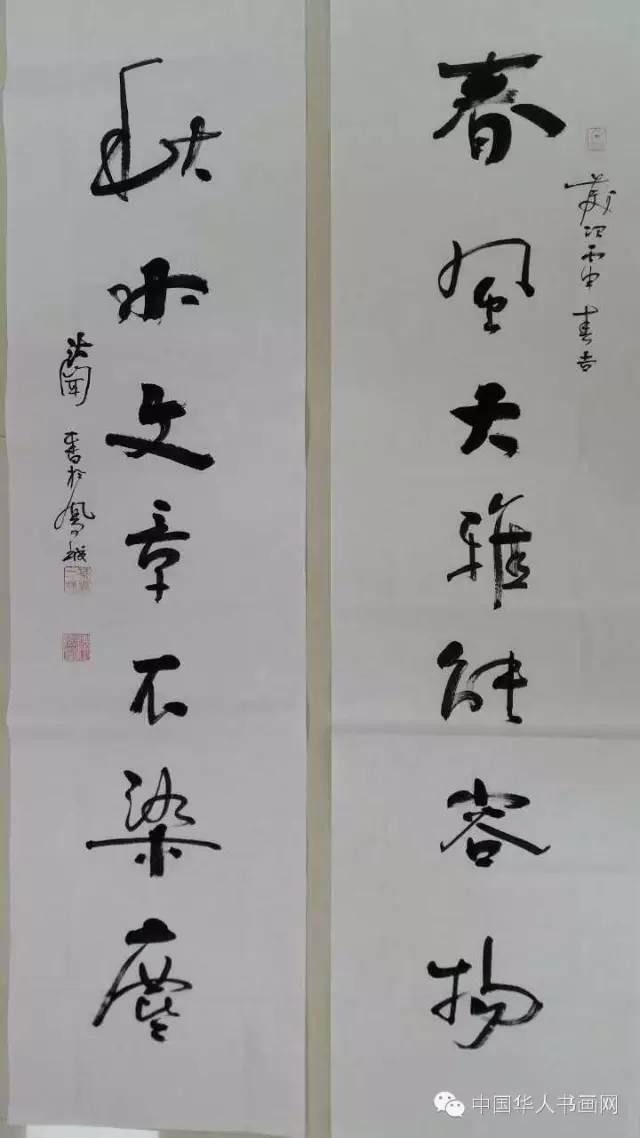 春风大雅能容物
秋水文章不染尘
书于
中国华人书画网